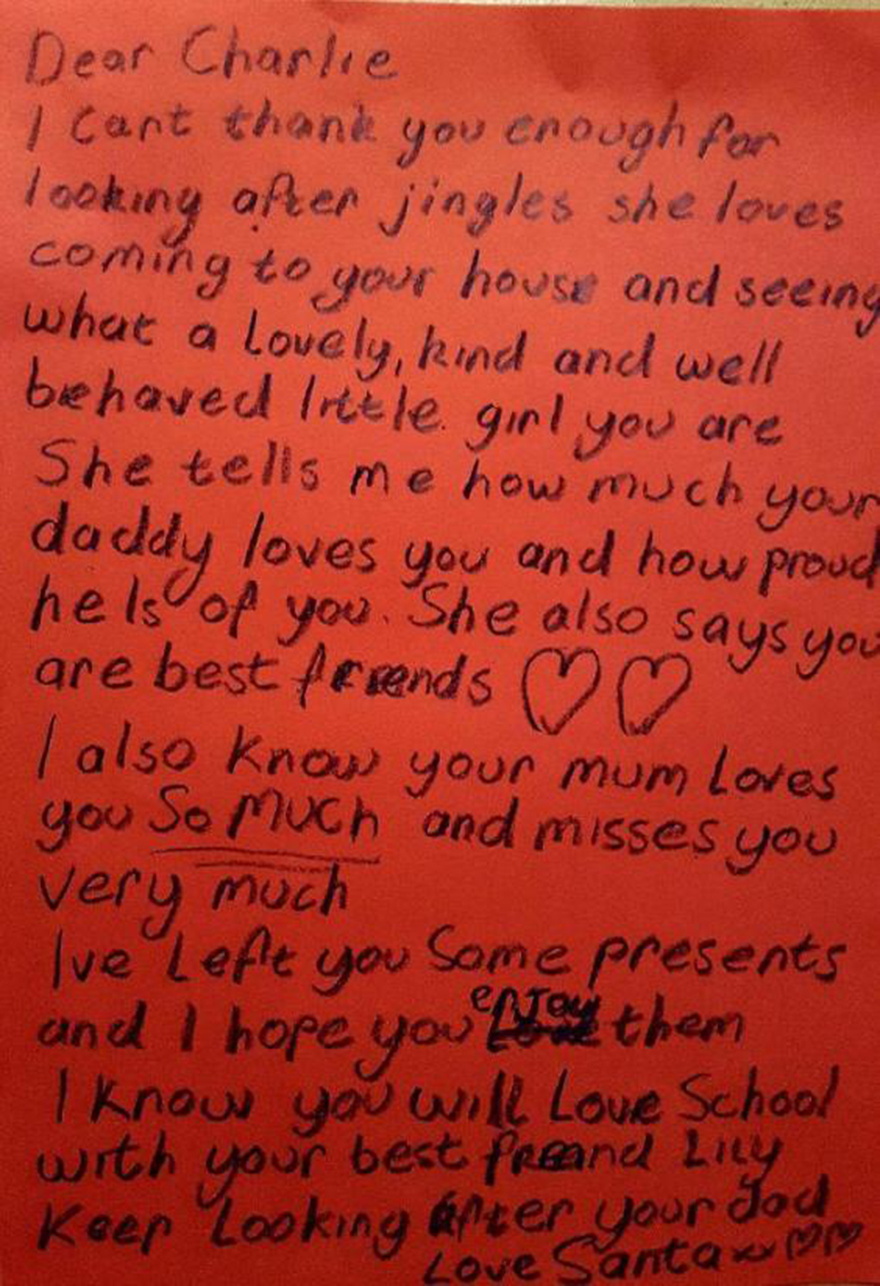 Dear Charlie
I Cant thank you enough for
looking after jingles she loves
coming to your house and seeing
what a Lovely, kind and well
behaved little girl you are
She tells me how much your
daddy loves you and how proud
he Is of you. She also says you
are best friends ♡♡
I also know your mum Loves
you So MUCH and misses you
very much
Ive Left you Some presents
and I hope you enjoy them
I know you will Love School
with your best friend Lily
Keep Looking After your dad
Love Santa